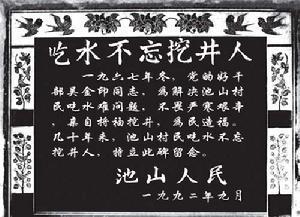 吃水不忘挖井人
一九六七年冬，党的好干
部吴金印同志，为解决池山村
民吃水难问题，不畏严寒艰辛
，亲自持袖挖井，为民造福。
几十年来，池山村民吃水不忘
挖井人，特立此碑留念。
池山人民
一九九二年九月